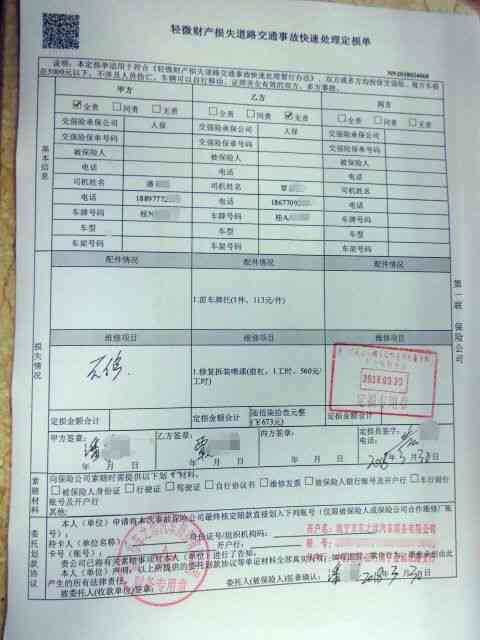 轻微财产损失道路交通事故快速处理定损单
说明：本定损单适用于符合《轻微财产损失道路交通事故快速处理暂行办法》，双方或多方均投保交强险，每方车损
在5000元以下，不涉及人员伤亡，车辆可以自行移动，证照齐全有效的双方、多方事故。
甲方 乙方 丙方
全责 同责 无责 全责 同责 无责 全责 同责 无责
基本信息
交强险承保公司 人保 交强险承保公司 人保 交强险承保公司
交强险保单号码 交强险保单号码 交强险保单号码
被保险人 被保险人 被保险人
电话 电话 电话
司机姓名 潘 司机姓名 覃 司机姓名
电话 18897772 电话 1867709 电话
车牌号码 桂N 车牌号码 桂A 车牌号码
车型 车型 车型
车架号码 车架号码 车架号码
第一联 保险公司
损失情况
配件情况 配件情况 配件情况
1.前车牌托(1件, 113元/件)
维修项目 维修项目 维修项目
无修
1.修复拆装喷漆(前杠, 1工时, 560元/
工时)
2018.03.30
定损专用章
定损金额合计 定损金额合计 陆佰柒拾叁元整
(￥673元) 定损金额合计
甲方签章： 潘 乙方签章： 覃 丙方签章： 定损员签字：
电话：
年 月 日 年 月 日 年 月 日 2018年3月30日
索赔材料
向保险公司索赔时需提供以下划“√”材料。
被保险人身份证 行驶证 驾驶证 自行协议书 维修发票 被保险人银行账号及开户行
账号及开户行
其他：
委托划款协议
本人（单位）申请将本次事故保险公司最终核定赔款直接划入下列账号
持卡人（单位）名称： 身份证号/组织机构码：
卡号（账号）： 开户行：
产生的所有法律责任。
被委托人(收款单位)签章： 委托人(被保险人)签章确认： 潘 2018年3月30日
财务专用章